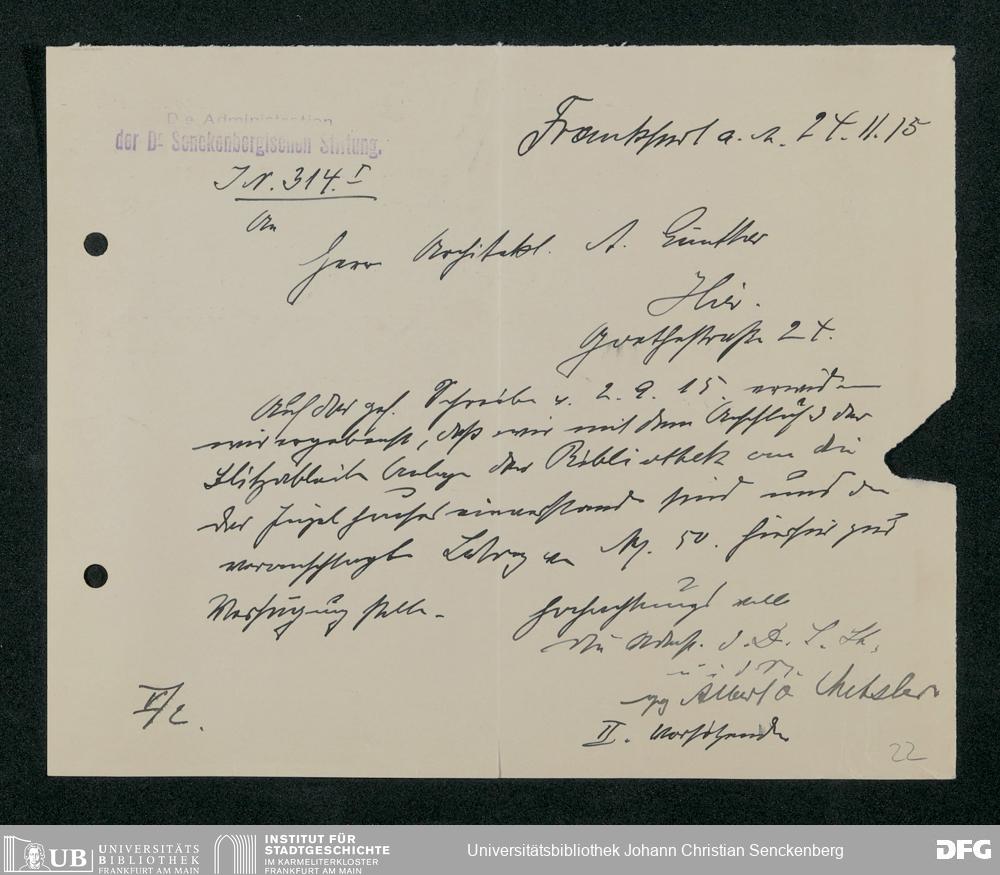 Die Administration
der Dr Senckenbergischen Stiftung.
Frankfurt a. M. 24. 11. 15
J N. 314. I
An
Herr Architekt. A. Günther
Hier.
Goethestraße 24.
Auf das gef. Schreiben v. 2. 9. 15. erwidern
wir ergebenst, daß wir mit dem Anschluß der
Blitzableiter Anlage der Bibliothek an die
des Hauses einverstanden sind und den
veranschlagten Betrag v. M. 50. hierfür zur
Verfügung stelle.
Hochachtungsvoll
Die Adm. d. D. S. St.
u. i. d. N.
gez Albert v Metzler
II. Vorsitzender
V/2.
22
UB UNIVERSITÄTS
BIBLIOTHEK
FRANKFURT AM MAIN
INSTITUT FÜR
STADTGESCHICHTE
IM KARMELITERKLOSTER
FRANKFURT AM MAIN
Universitätsbibliothek Johann Christian Senckenberg
DFG